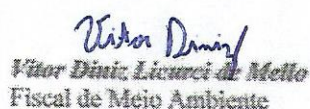 Vitor Diniz
Vitor Diniz Licurci de Mello
Fiscal de Meio Ambiente